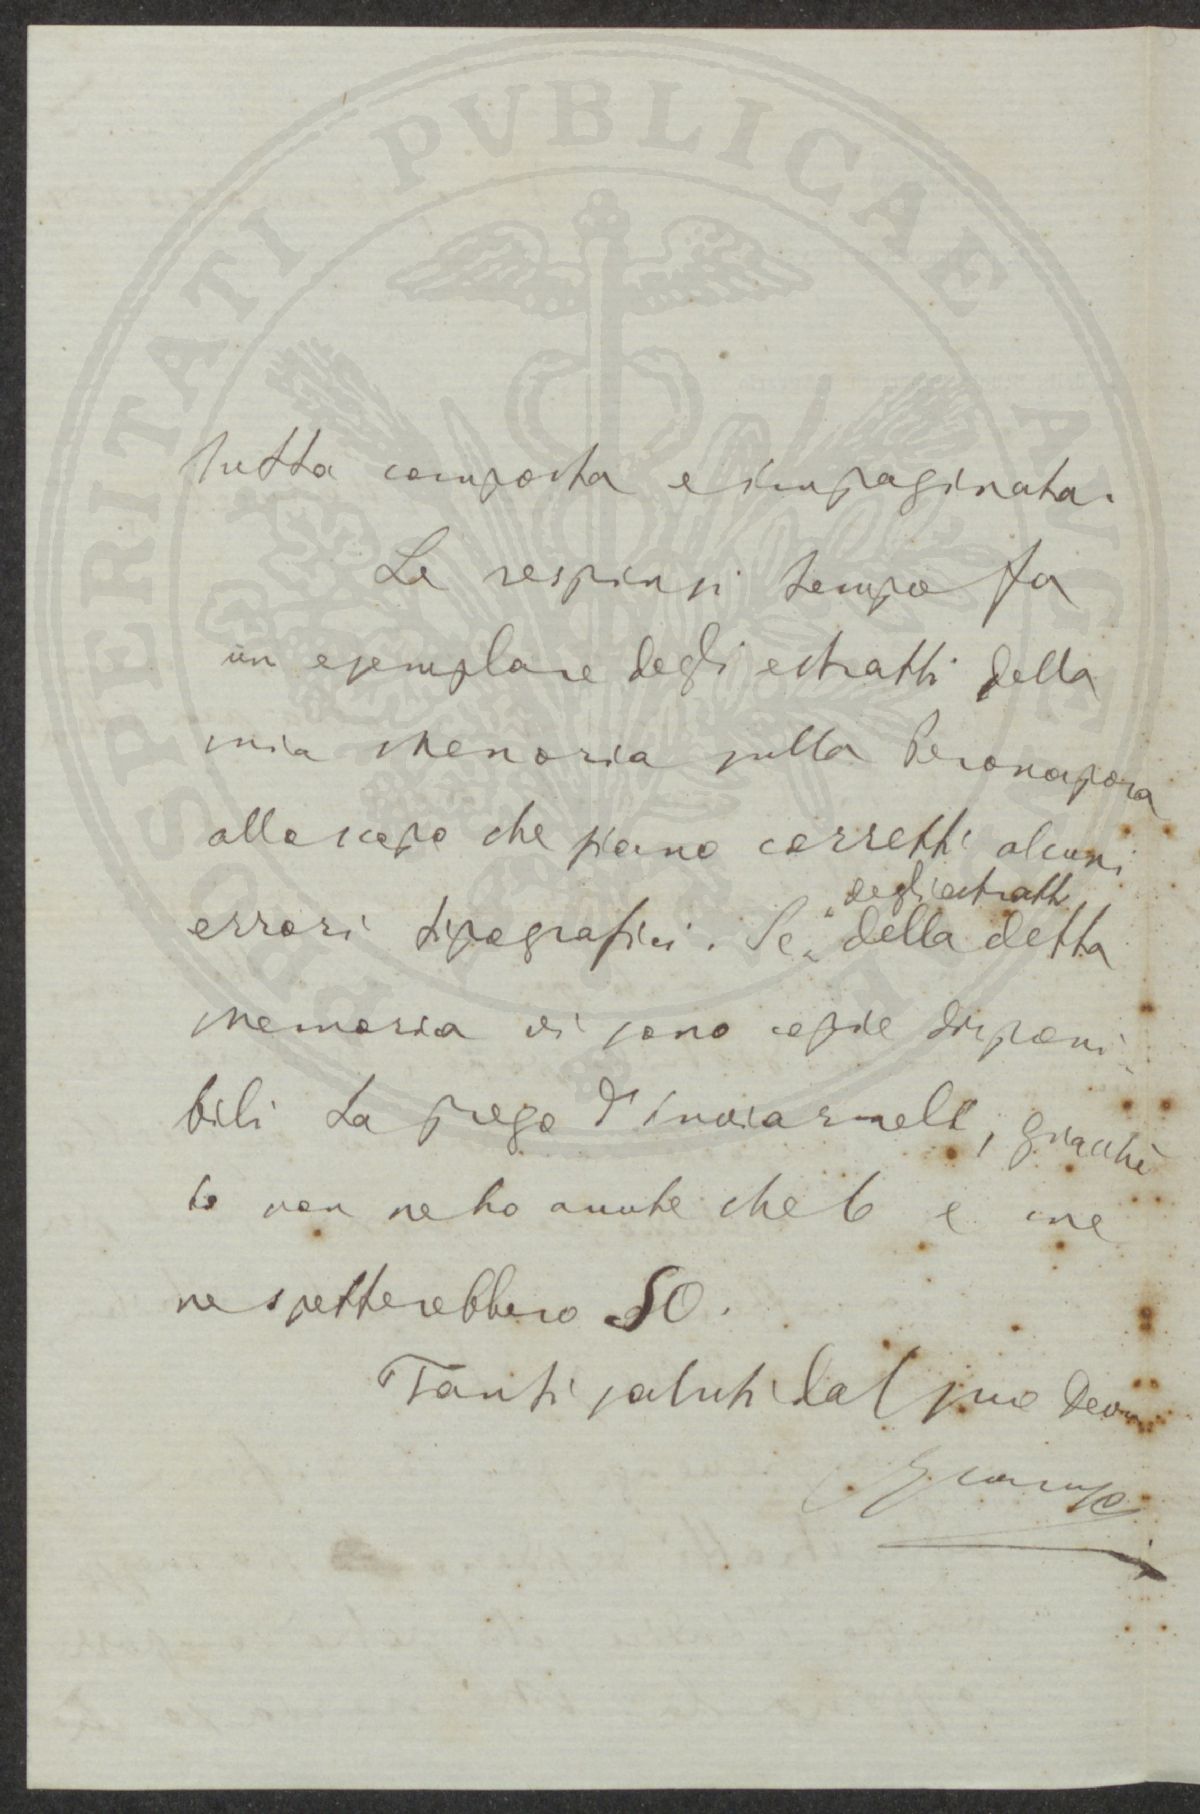 PROSPERITATI PVBLICAE AVGENDAE
tutta composta e impaginata.
Le respinsi tempo fa
un esemplare degli estratti della
mia Memoria sulla Peronospora
allo scopo che siano corretti alcuni
errori tipografici. Se degli estratti della detta
Memoria vi sono copie disponi
bili La prego d'inviarmele, giacchè
io non ne ho avute che 6 e me
ne spetterebbero 50.
Tanti saluti dal suo Devmo